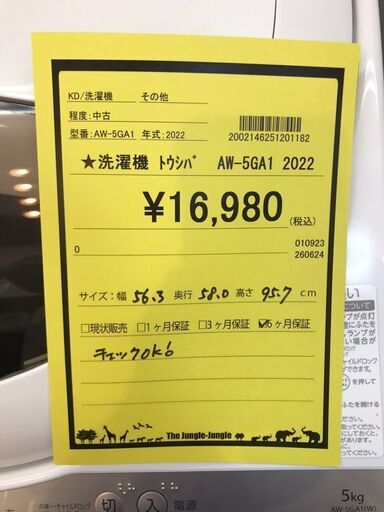 KD/洗濯機 その他
程度:中古
型番:AW-5GA1 年式:2022
2002146251201182
★洗濯機 ﾄｳｼﾊﾞ AW-5GA1 2022
¥16,980
(税込)
0 010923
260624
サイズ:幅 56.3 奥行 58.0 高さ 95.7 cm
□現状販売 □1ヶ月保証 □3ヶ月保証 ☑6ヶ月保証
チェックOK!
The Jungle-Jungle
切 入 電源
5kg
AW-5GA1(W)